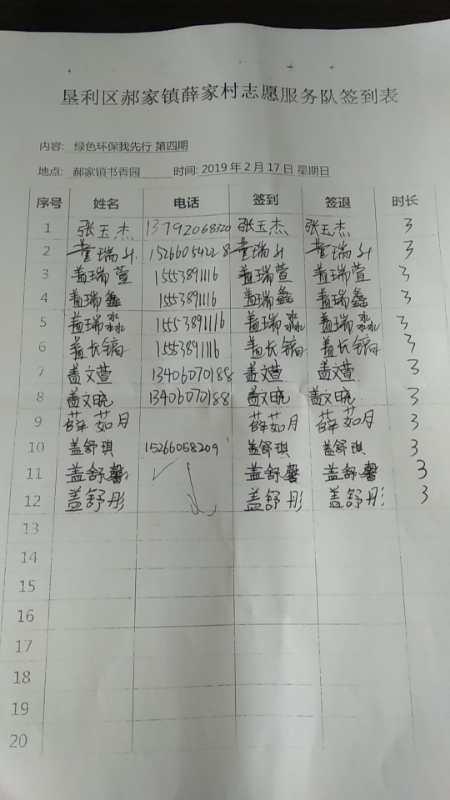 垦利区郝家镇薛家村志愿服务队签到表
内容: 绿色环保我先行 第四期
地点: 郝家镇书香园 时间: 2019 年 2 月 17 日 星期日
序号 姓名 电话 签到 签退 时长
1 张玉杰 13792068320 张玉杰 张玉杰 3
2 董瑞斗 15266054228 董瑞斗 董瑞斗 3
3 盖瑞萱 15553891116 盖瑞萱 盖瑞萱 3
4 盖瑞鑫 15553891116 盖瑞鑫 盖瑞鑫 3
5 盖瑞淼 15553891116 盖瑞淼 盖瑞淼 3
6 盖长镐 15553891116 盖长镐 盖长镐 3
7 盖文萱 13406070188 盖文萱 盖文萱 3
8 盖文晓 13406070188 盖文晓 盖文晓 3
9 薛茹月 薛茹月 薛茹月 3
10 盖舒琪 15266058209 盖舒琪 盖舒琪 3
11 盖舒馨 盖舒馨 盖舒馨 3
12 盖舒彤 盖舒彤 盖舒彤 3
13
14
15
16
17
18
19
20